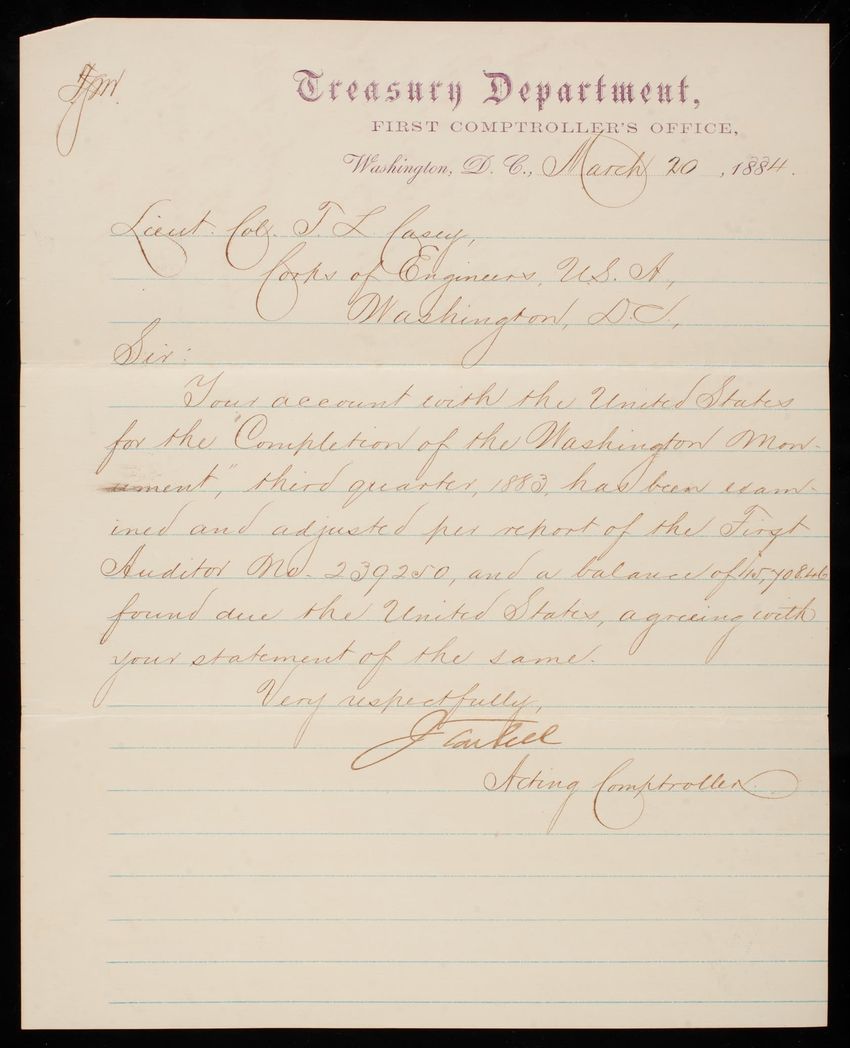 Treasury Department,
FIRST COMPTROLLER'S OFFICE,
Washington, D. C., March 20, 1884.
Lieut. Col. T. L. Casey,
Corps of Engineers, U.S.A.,
Washington, D.C.,
Sir:
Your account with the United States
for the "Completion of the Washington Mon-
ument", third quarter, 1883, has been exam-
ined and adjusted per report of the First
Auditor No. 239250, and a balance of $15,708.46
found due the United States, agreeing with
your statement of the same.
Very respectfully,
J Tarbell
Acting Comptroller